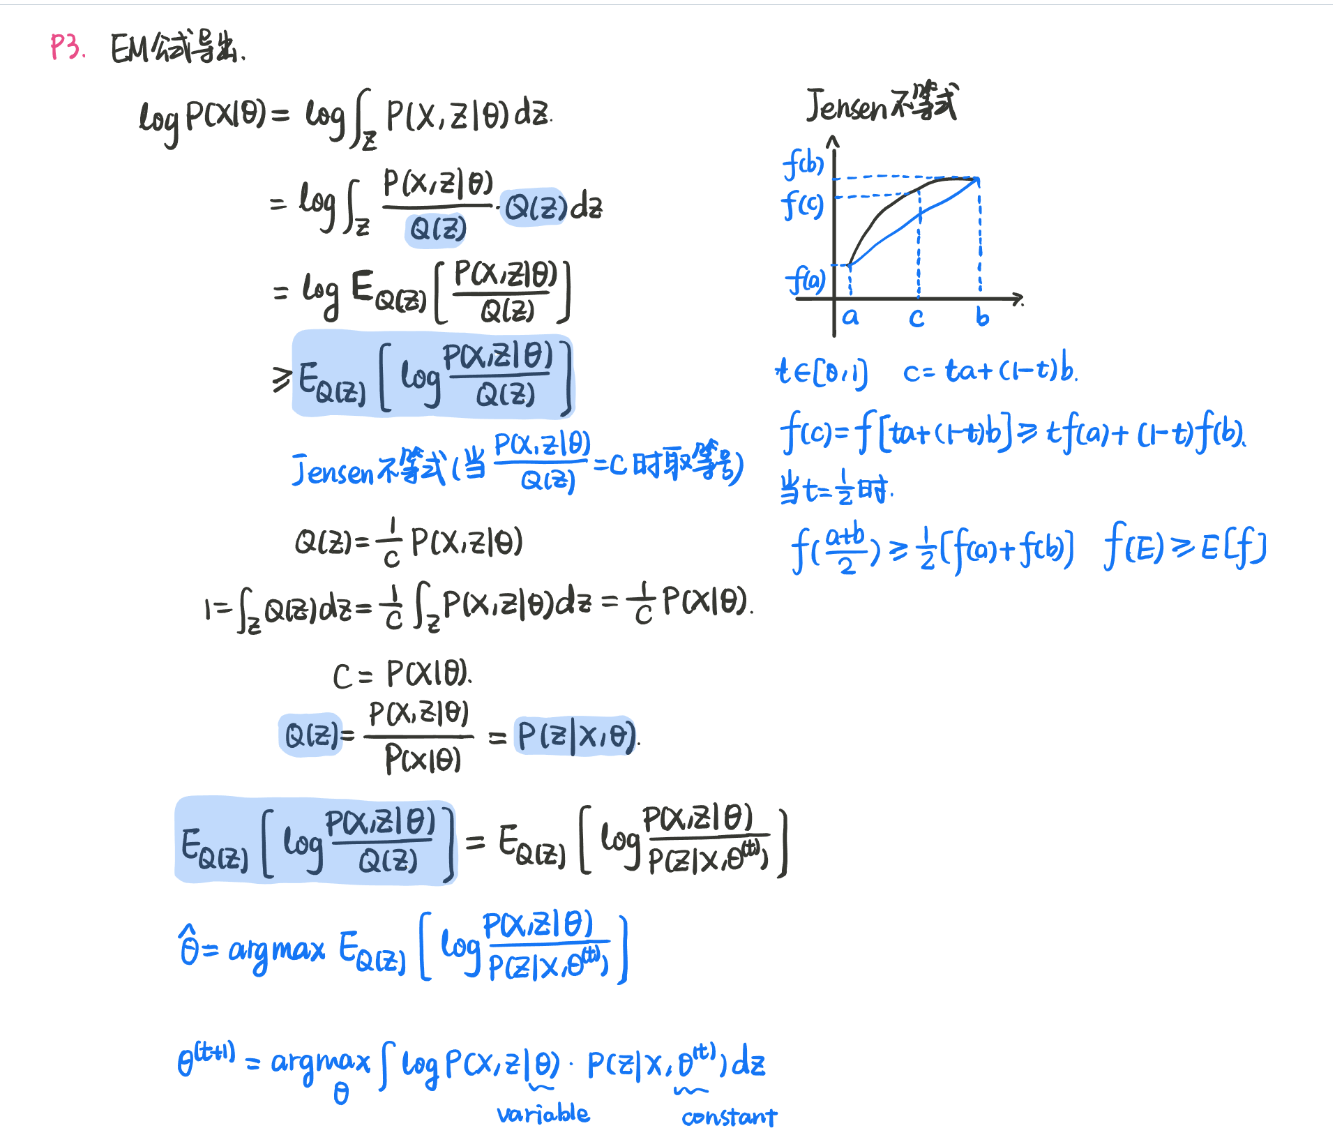 P3. EM公式导出.
log P(X|θ) = log ∫_Z P(X,Z|θ) dZ.
= log ∫_Z \frac{P(X,Z|θ)}{Q(Z)} · Q(Z) dZ
= log E_{Q(Z)} [ \frac{P(X,Z|θ)}{Q(Z)} ]
≥ E_{Q(Z)} [ log \frac{P(X,Z|θ)}{Q(Z)} ]
Jensen不等式(当 \frac{P(X,Z|θ)}{Q(Z)} = C 时取等号)
Q(Z) = \frac{1}{C} P(X,Z|θ)
1 = ∫_Z Q(Z) dZ = \frac{1}{C} ∫_Z P(X,Z|θ) dZ = \frac{1}{C} P(X|θ).
C = P(X|θ).
Q(Z) = \frac{P(X,Z|θ)}{P(X|θ)} = P(Z|X,θ).
E_{Q(Z)} [ log \frac{P(X,Z|θ)}{Q(Z)} ] = E_{Q(Z)} [ log \frac{P(X,Z|θ)}{P(Z|X,θ^{(t)})} ]
θ̂ = argmax E_{Q(Z)} [ log \frac{P(X,Z|θ)}{P(Z|X,θ^{(t)})} ]
θ^{(t+1)} = argmax_θ ∫ log P(X,Z|θ) · P(Z|X,θ^{(t)}) dZ
variable constant
Jensen不等式
f(b)
f(c)
f(a)
a c b
t∈[0,1] c = ta+(1-t)b.
f(c) = f[ta+(1-t)b] ≥ tf(a)+(1-t)f(b).
当t=\frac{1}{2}时.
f(\frac{a+b}{2}) ≥ \frac{1}{2}[f(a)+f(b)] f(E) ≥ E[f]